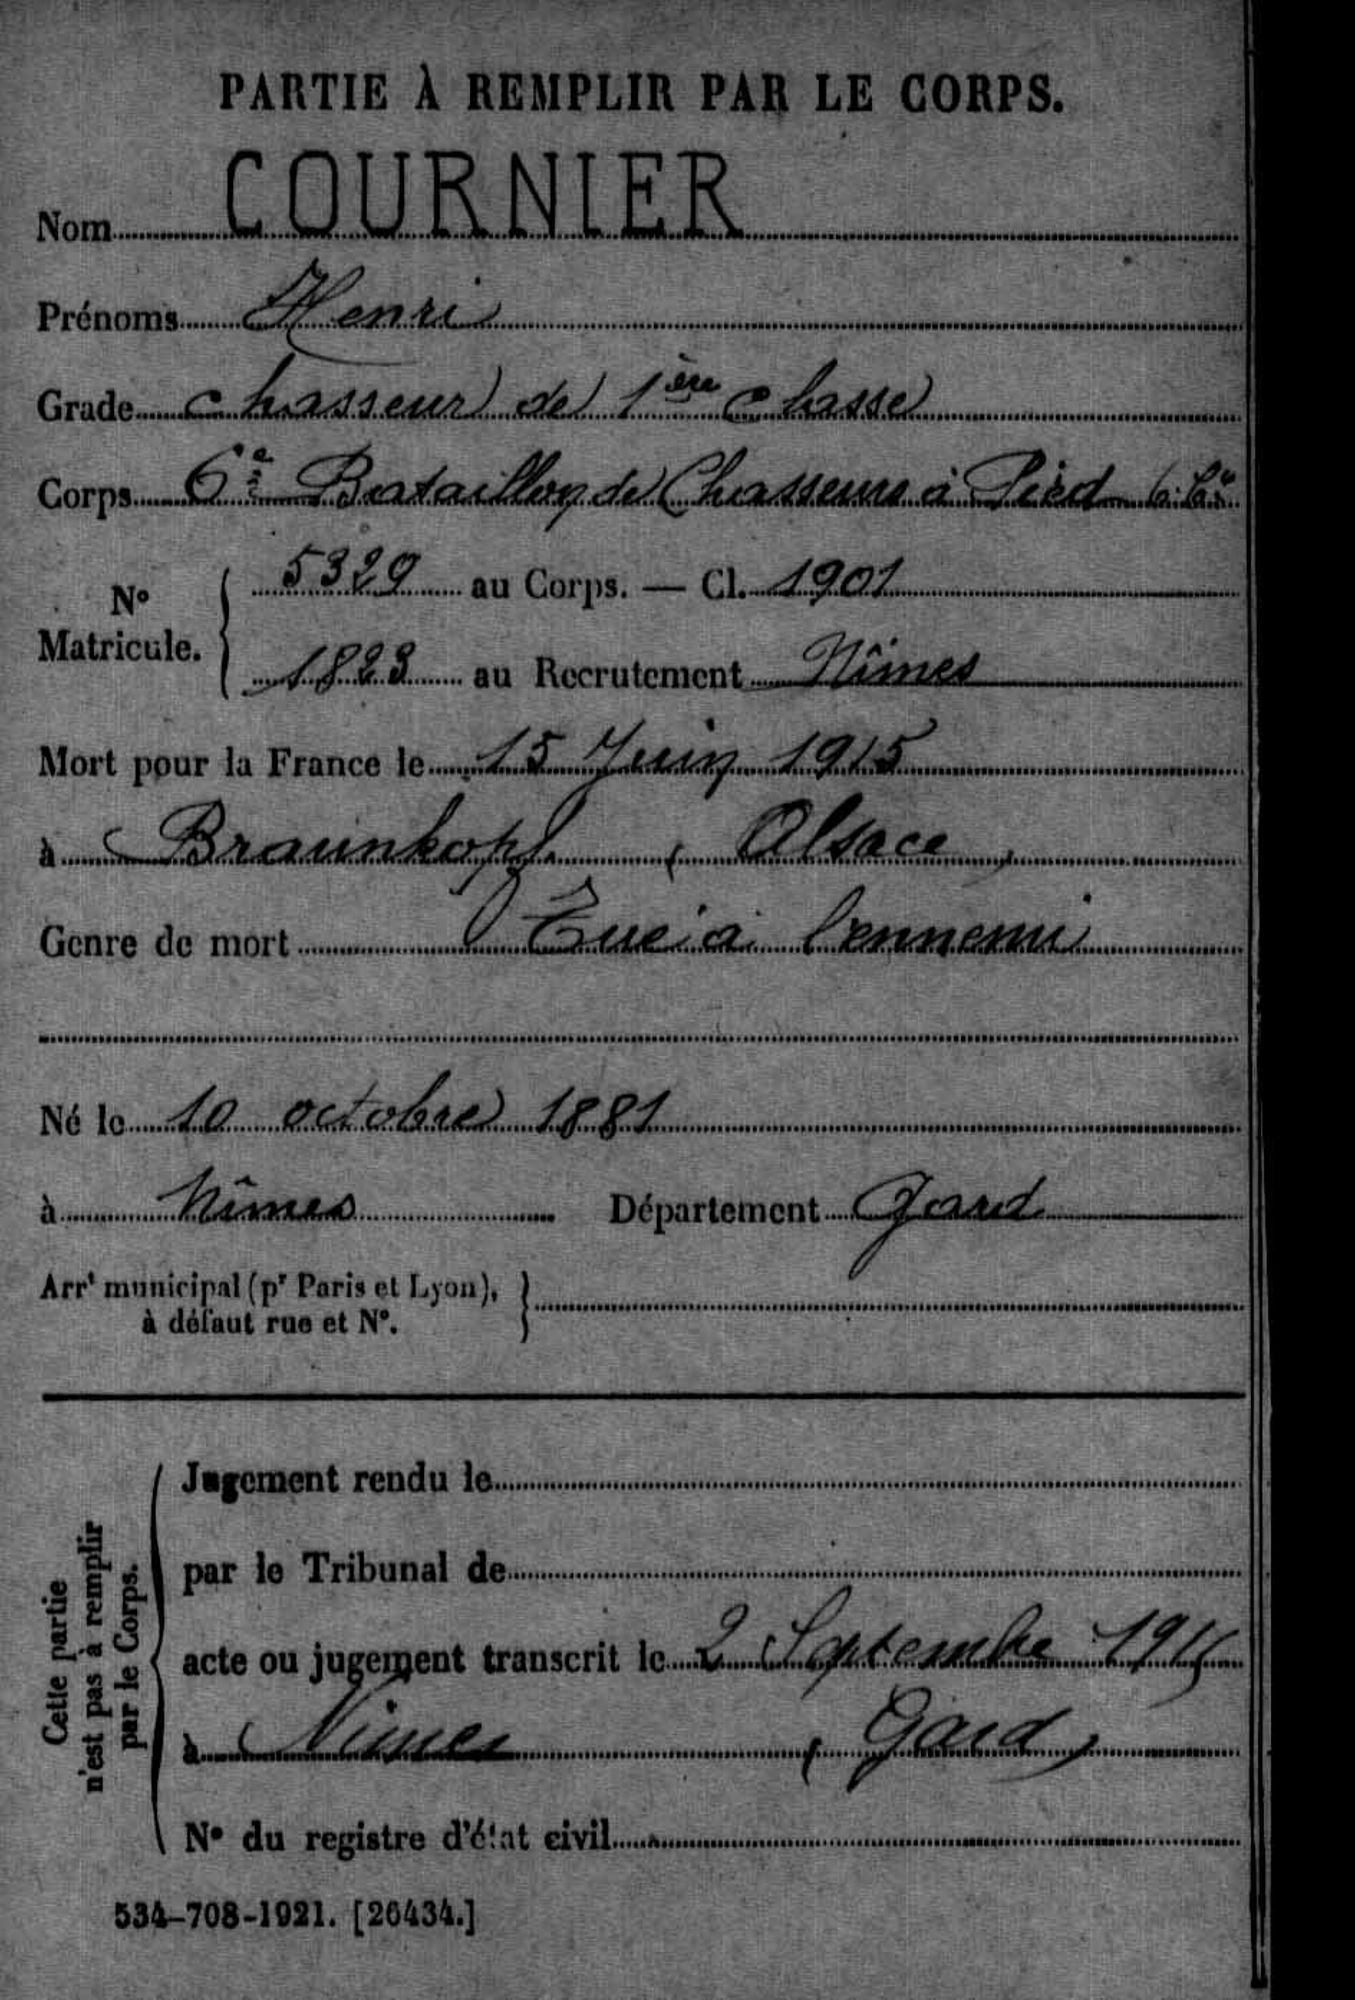 PARTIE À REMPLIR PAR LE CORPS.
Nom COURNIER
Prénoms Henri
Grade chasseur de 1ère Classe
Corps 6e Bataillon de Chasseurs à Pied 6. Cie
No Matricule. 5329 au Corps. — Cl. 1901
1823 au Recrutement Nîmes
Mort pour la France le 15 Juin 1915
à Braunkopf (Alsace)
Genre de mort Tué à l'ennemi
Né le 10 octobre 1881
à Nîmes Département Gard
Arrt municipal (pr Paris et Lyon), à défaut rue et No.
Cette partie n'est pas à remplir par le Corps.
Jugement rendu le
par le Tribunal de
acte ou jugement transcrit le 2 Septembre 1915
à Nîmes (Gard)
No du registre d'état civil
534-708-1921. [26434.]